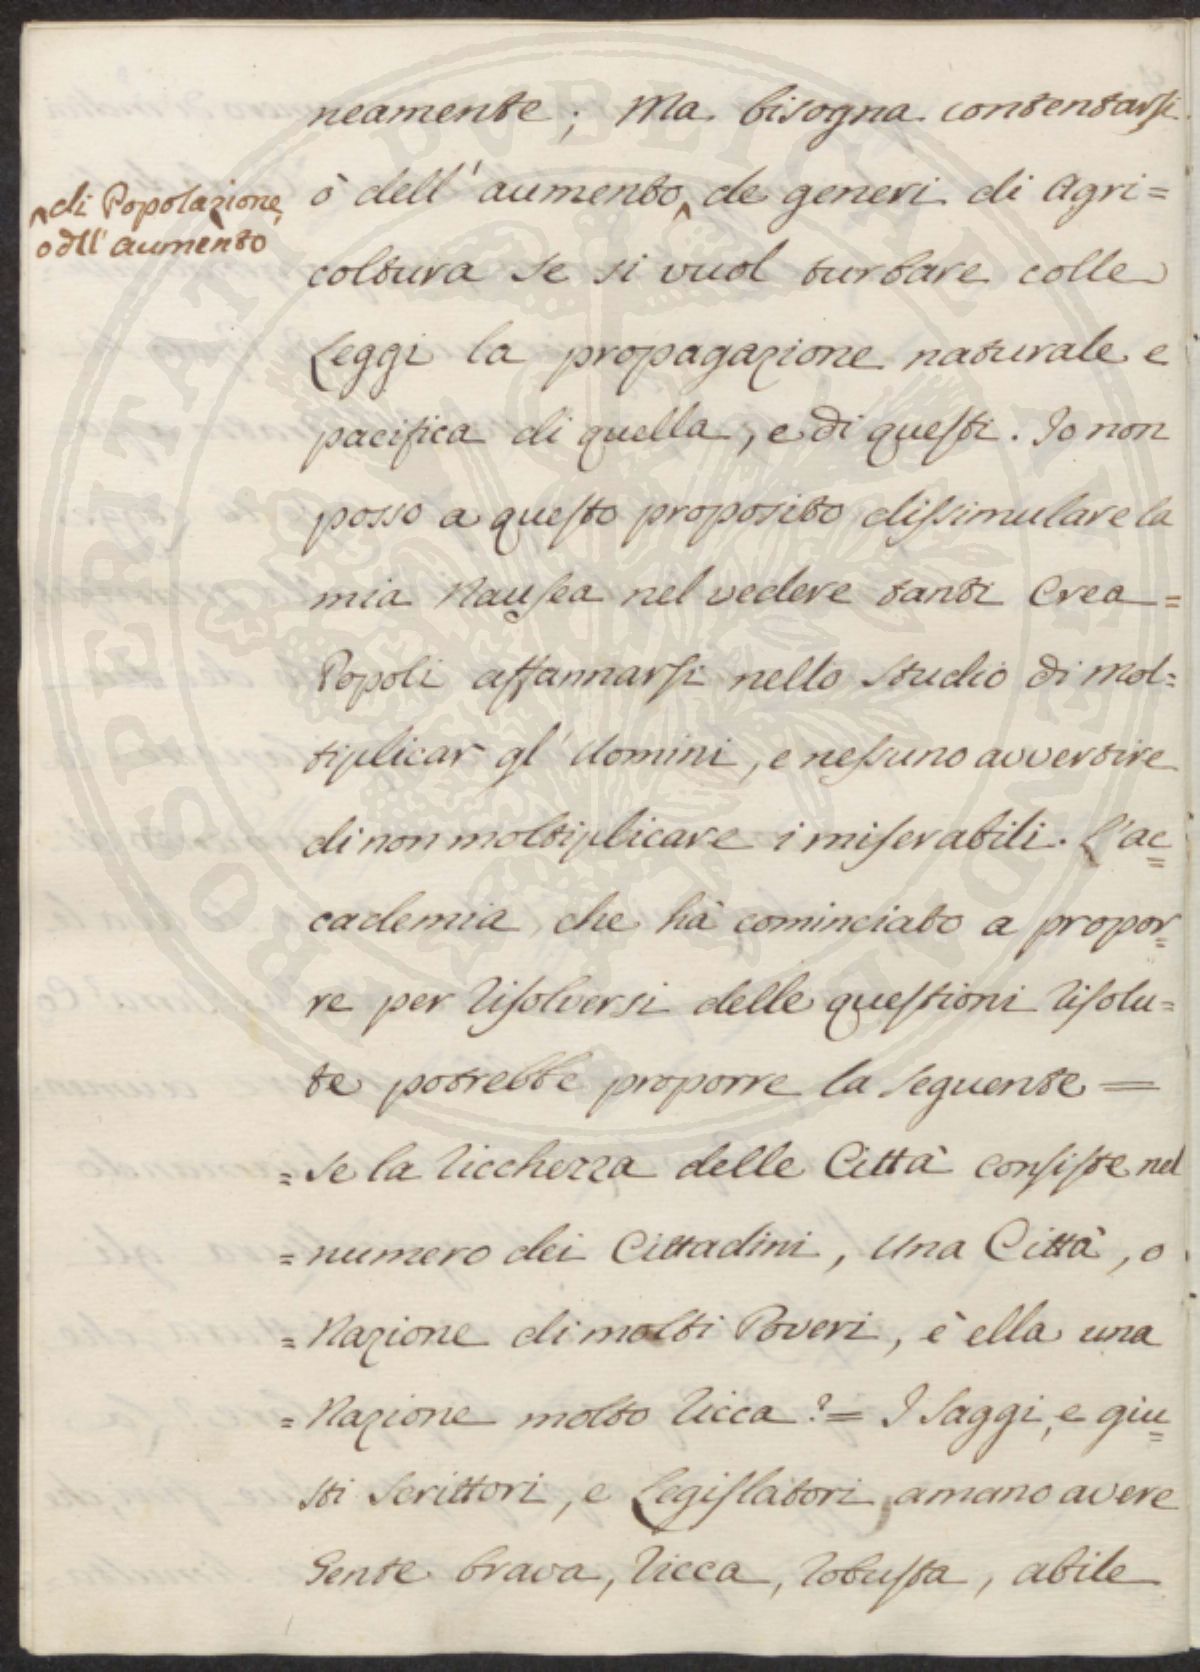 neamente; Ma bisogna contentarsi
ò dell'aumento^ de generi di Agri=
^di Popolazione,
o dell'aumento
coltura se si vuol turbare colle
Leggi la propagazione naturale e
pacifica di quella, e di questi. Io non
posso a questo proposito dissimulare la
mia Nausea nel vedere tanti Crea=
Popoli affannarsi nello studio di mol=
tiplicar gl'Uomini, e nessuno avvertire
di non moltiplicare i miserabili. L'ac=
cademia che hà cominciato a propor=
re per risolversi delle questioni risolu=
te potrebbe proporre la seguente =
= se la ricchezza delle Città consiste nel
= numero dei Cittadini, una Città, o
= Nazione di molti Poveri, è ella una
= Nazione molto ricca? = I saggi, e giu=
sti scrittori, e Legislatori amano avere
Gente brava, ricca, robusta, abile
PUBLICAE PROSPERITATI